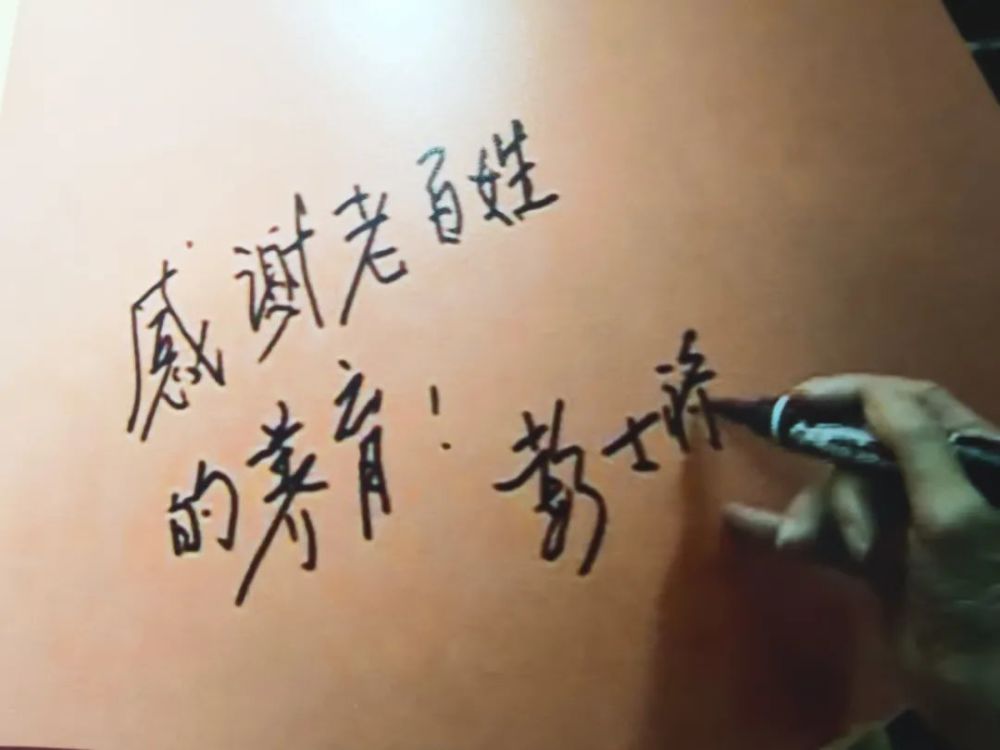 感谢老百姓
的养育！ 彭士禄